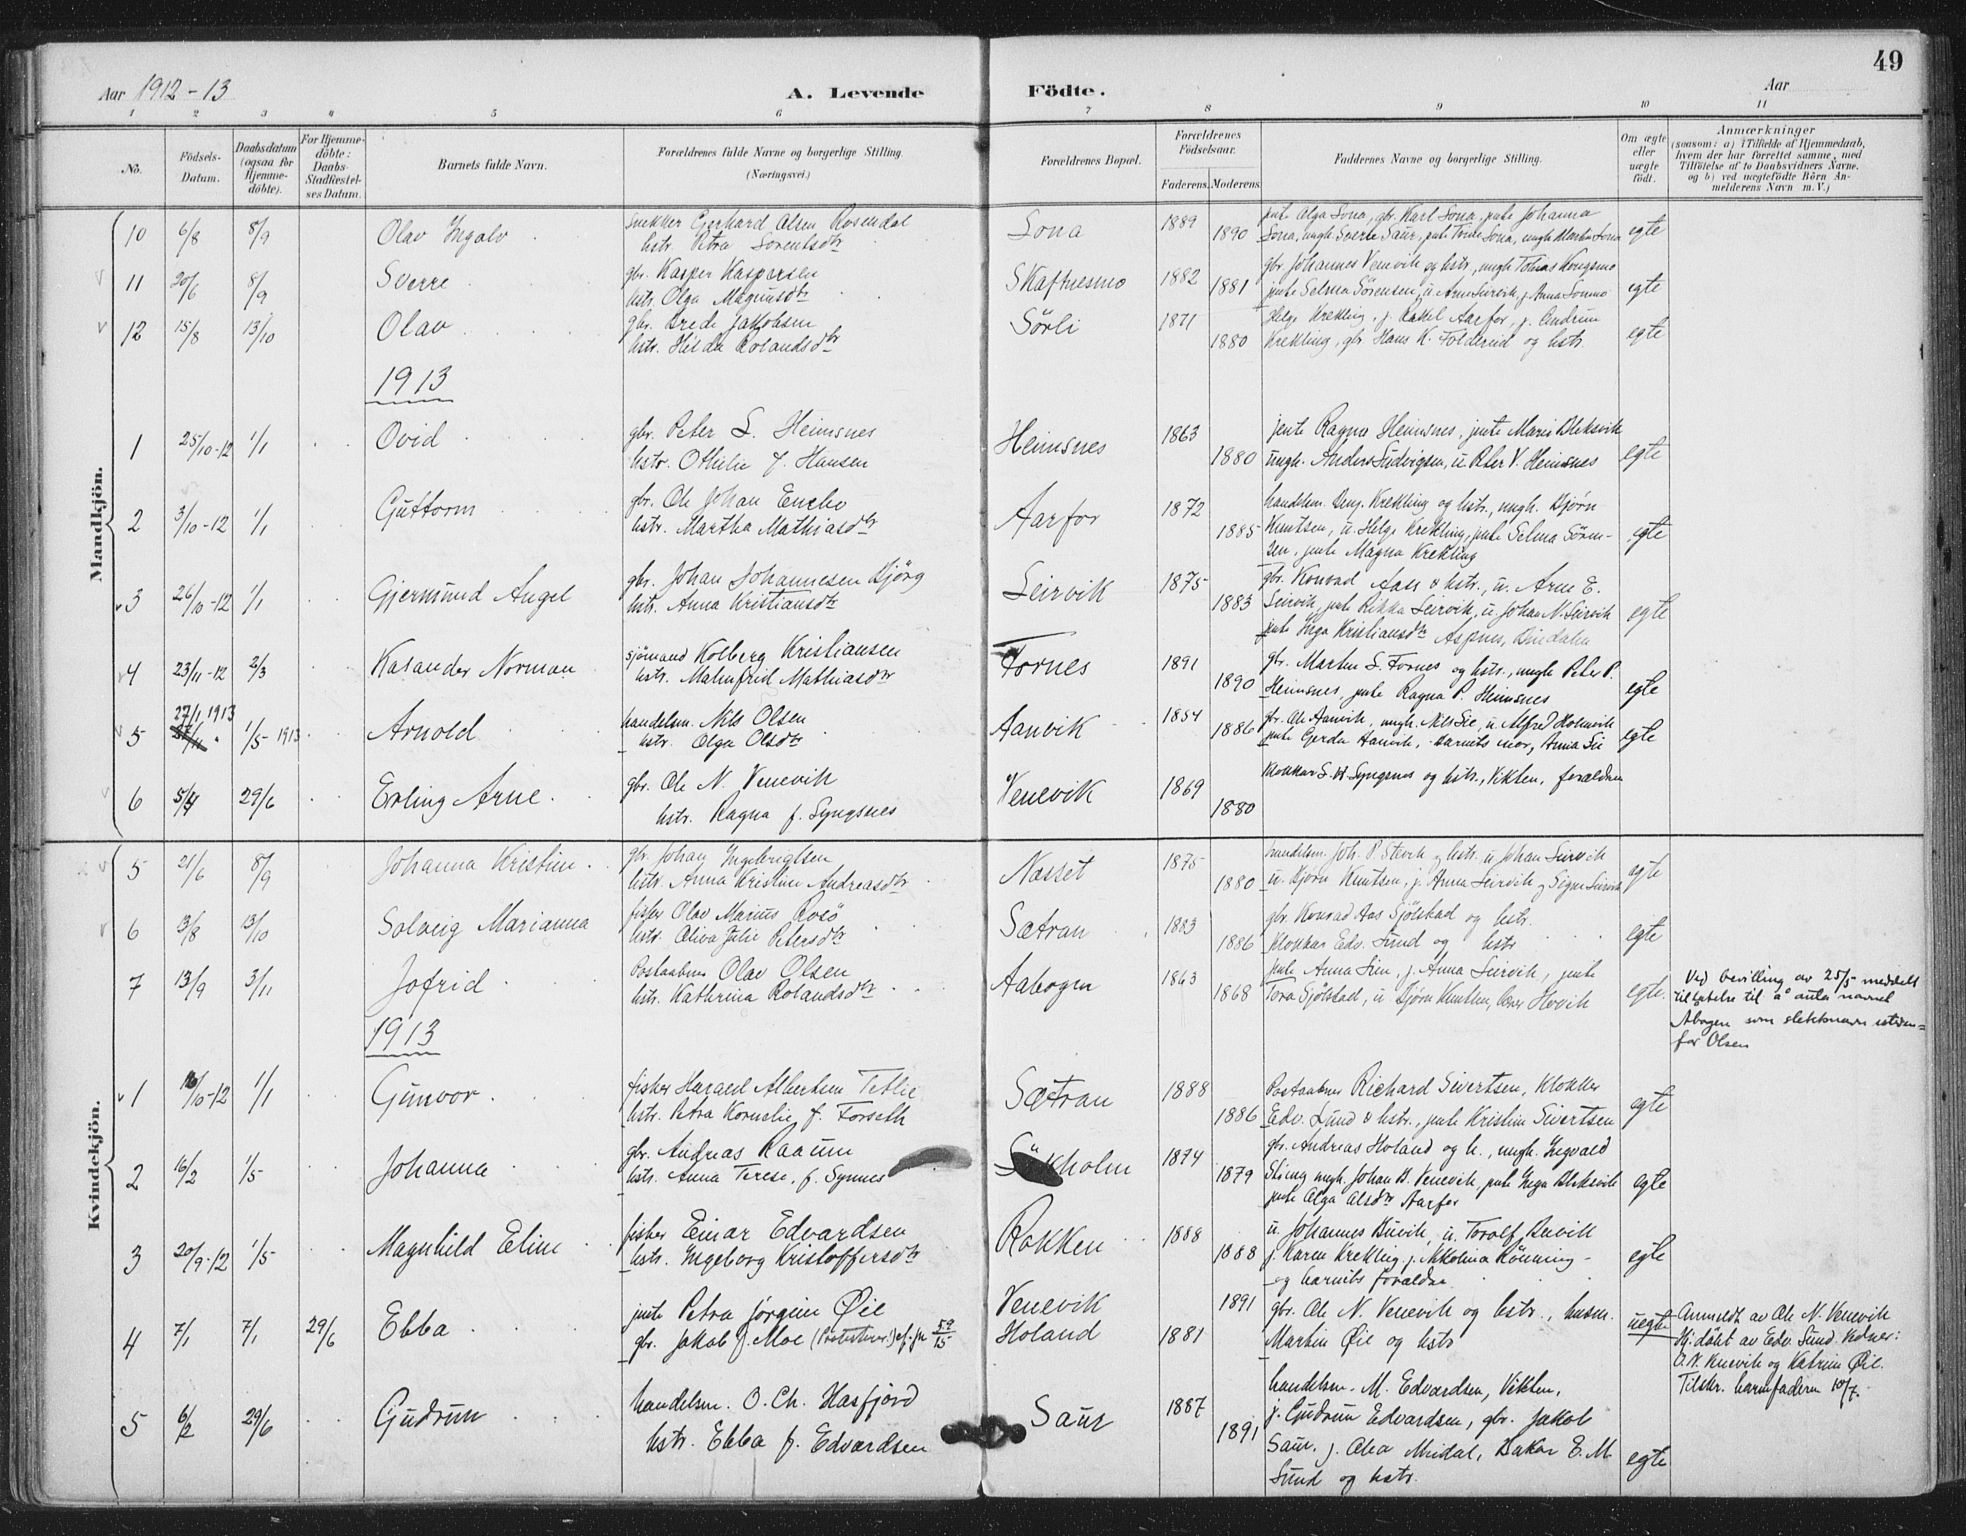 49
Aar 1912-13
A. Levende Födte.
Aar
1 2 3 4 5 6 7 8 9 10 11
No.
Födsels-Datum.
Daabsdatum (ogsaa for Hjemmedöbte).
For Hjemmedöbte: Daabs-Stadfæstelses Datum.
Barnets fulde Navn.
Forældrenes fulde Navne og borgerlige Stilling (Næringsvei.)
Forældrenes Bopæl.
Forældrenes Födselsaar.
Faderens. Moderens.
Faddernes Navne og borgerlige Stilling.
Om ægte eller uægte födt.
Anmærkninger
(saasom: a) i Tilfælde af Hjemmedaab, hvem der har forrettet samme, med Tilföielse af to Daabsvidners Navne. og b) ved uægtefödte Börn Anmelderens Navn m. V.)
Mandkjön.
10 6/8 8/9 Olav Ingolv
snekker Gerhard Olsen Rosendal
hstr. Petra Lorentsdtr
Sona 1889 1890
pute Olga Sona, gbr. Karl Sona, jente Johanna
Sona, ungk. Sverre Saur, jente Tomine Sona, ungk Martin Sona
egte
11 20/6 8/9 Sverre
gbr. Kasper Kaspersen
hstr. Olga Magnusdtr
Skaftnesmo 1882 1881
gbr. Johannes Venevik og hstr., ungk Tobias Kongsmo
jente Selma Sörensen, u. Arne Seirvik, j. Anna Sonmo
egte
12 15/8 13/10 Olav
gbr. Brede Jakobsen
hstr. Hilda Rolandsdtr
Sörli 1871 1880
Helge Krekling, j. Rakel Aarfor, j. Gudrun
Krekling, gbr Hans K. Folderud og hstr.
egte
1913
1 25/10-12 1/1 Ovid
gbr. Peter L. Heimsnes
hstr. Othilie f. Hansen
Heimsnes 1863 1880
jente Ragna Heimsnes, jente Marie Bleksvik
ungk. Anders Ludvigsen, u. Peter V. Heimsnes
egte
2 3/10-12 1/1 Guttorm
gbr. Ole Johan
hstr. Martha Mathiasdtr
Aarfor 1872 1885
handelsm. Krekling og hstr., ungk. Bjørn
Knutsen, u. Helge Krekling, jente Selma Sören-
sen, jente Magna Krekling
egte
3 26/10-12 1/1 Gjermund Angel
gbr. Johan Johannesen Bjørg
hstr. Anna Kristiansdtr
Leirvik 1875 1883
gbr. Konrad Aass & hstr., u. Arne E.
Seirvik, jente Rikka Seirvik, u. Johan N. Seirvik
jente Inga Kristiansdtr Aspnes, Bindalen
egte
4 23/11-12 2/3 Kasander Norman
sjömand Kolberg Kristiansen
hstr. Malmfrid Mathiasdtr
Fornes 1891 1890
gbr. Martin L. Fornes og hstr., ungk Peter P.
Heimsnes, jente Ragna P. Heimsnes
egte
5 27/1 1913 1/5 1913 Arnold
handelsm. Nils Olsen
hstr. Olga Olsdtr
Aanvik 1854 1886
gbr. Ole Aanvik, ungk. Nils Lie, u. Alfred Holmvik
jente Gerda Aanvik, barnets mor, Anna Lie
egte
6 5/4 29/6 Erling Arne
gbr. Ole N. Venevik
hstr. Ragna f. Syngsnes
Venevik 1869 1880
Klokker S. Syngsnes og hstr., Vikten, forældrene
Kvindekjön.
5 21/6 8/9 Johanna Kristine
gbr. Johan Ingebrigtsen
hstr. Anna Kristine Andreasdtr
Næsset 1875 1880
handelsm. Joh. P. Stevik og hstr. u. Johan Seirvik
u. Bjørn Knutsen, j. Anna Seirvik og Signe Seirvik
egte
6 13/8 13/10 Solveig Marianna
fisker Olav Marius Rosö
hstr. Oliva Julie Petersdtr
Sætran 1883 1886
gbr. Konrad Aas Sjölstad og hstr.
Klokker Edv. Lund og hstr
egte
7 13/9 3/11 Jofrid
Postaabner Olav Olsen
hstr. Kathrina Rolandsdtr
Aabogen 1863 1868
jente Anna Lien, j. Anna Seirvik, jente
Tora Sjölstad, u. Bjørn Knutsen, lærer Hovik
egte.
Ved bevilling av 25/5 meddelt
tillatelse til å anta navnet
Åbogen som slektsnavn isteden-
for Olsen
1913
1 16/10-12 1/1 Gunvor
fisker Harald Albertsen Tetlie
hstr. Petra Kornelie f. Forseth
Sætran 1888 1886
Postaabner Richard Sivertsen, Klokker
Edv. Lund & hstr., jente Kristine Sivertsen
egte
2 16/2 1/5 Johanna
gbr. Andreas Raaum
hstr. Anna Terese, f. Synnes
1874 1879
gbr. Andreas Holand og h., ungk. Ingvald
ungk. Johan B. Venevik, jente Inga Bleksvik
jente Olga Olsdtr Aarfor
egte
3 20/9-12 1/5 Magnhild Eline
fisker Einar Edvardsen
hstr. Ingeborg Kristoffersdtr
Rokken 1888 1888
u. Johannes Buvik, u. Torolf Buvik
j. Karen Krekling, j. Nikolina Rönning -
og barnets forældre
egte
4 7/1 7/1 29/6 Ebba
jente Petra Jörgine Øie
gbr. Jakob J. Moe (Protesterer) cf. jn 59/15
Venevik 1891
Holand 1881
gbr. Ole N. Venevik og hstr., husm.
Martin Øie og hstr
uegte
Anmeldt av Ole N. Venevik
Hj: döbt av Edv. Lund. Vidner:
O. N. Venevik og Katrine Øie.
Tilskr. barnefaderen 10/7.
5 6/2 29/6 Gudrun
handelsm. O. Ch. Hasfjord
hstr. Ebba f. Edvardsen
Saur 1887 1891
handelsm. M. Edvardsen, Vikten,
j. Gudrun Edvardsen, gbr. Jakob
Saur, j. Olea Meidal, Baker E. M.
Lund og hstr.
egte